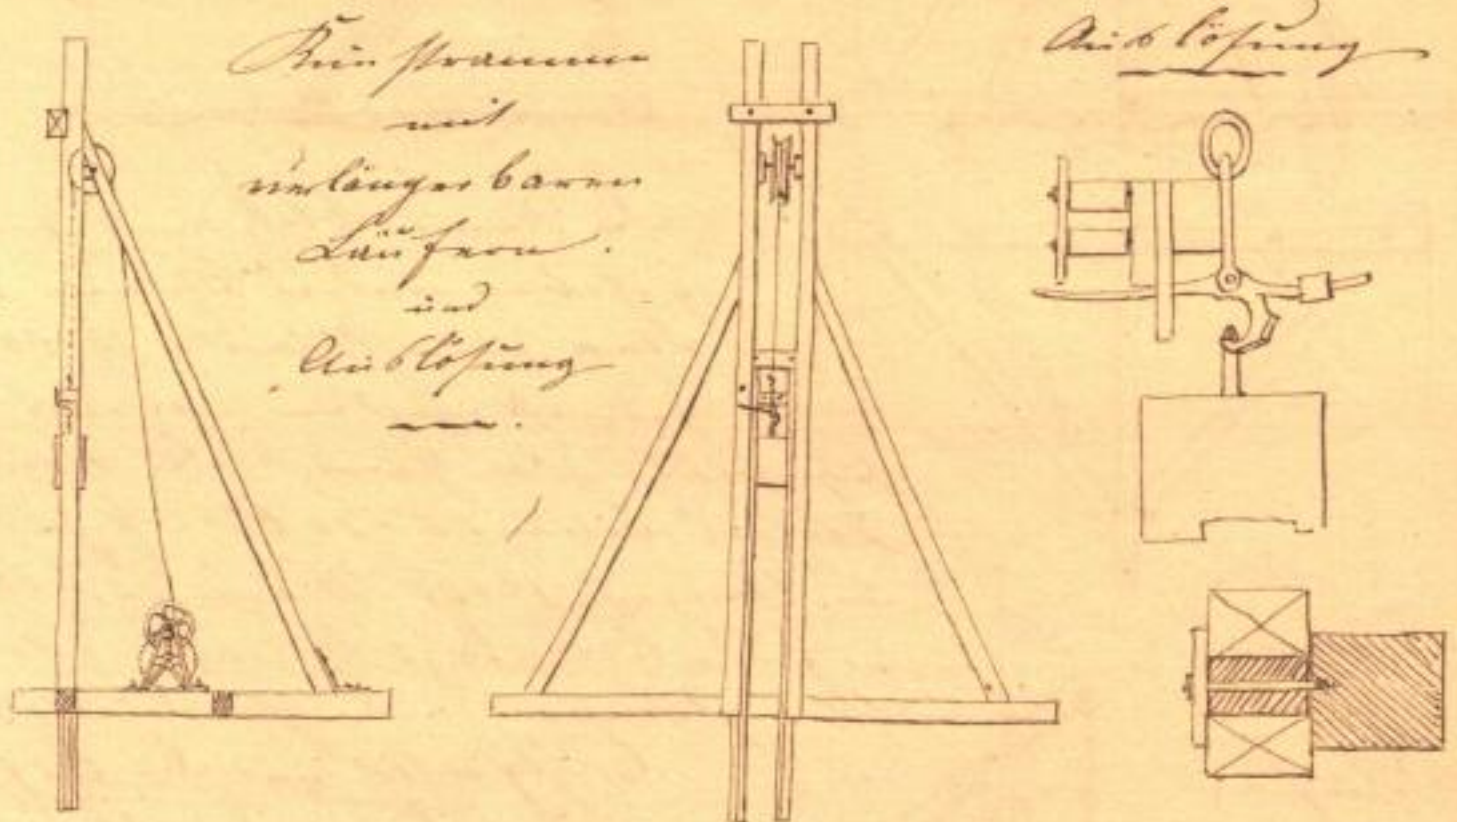 Kunstramme
mit
verlängerbaren
Läufern.
und
Auslösung
Auslösung